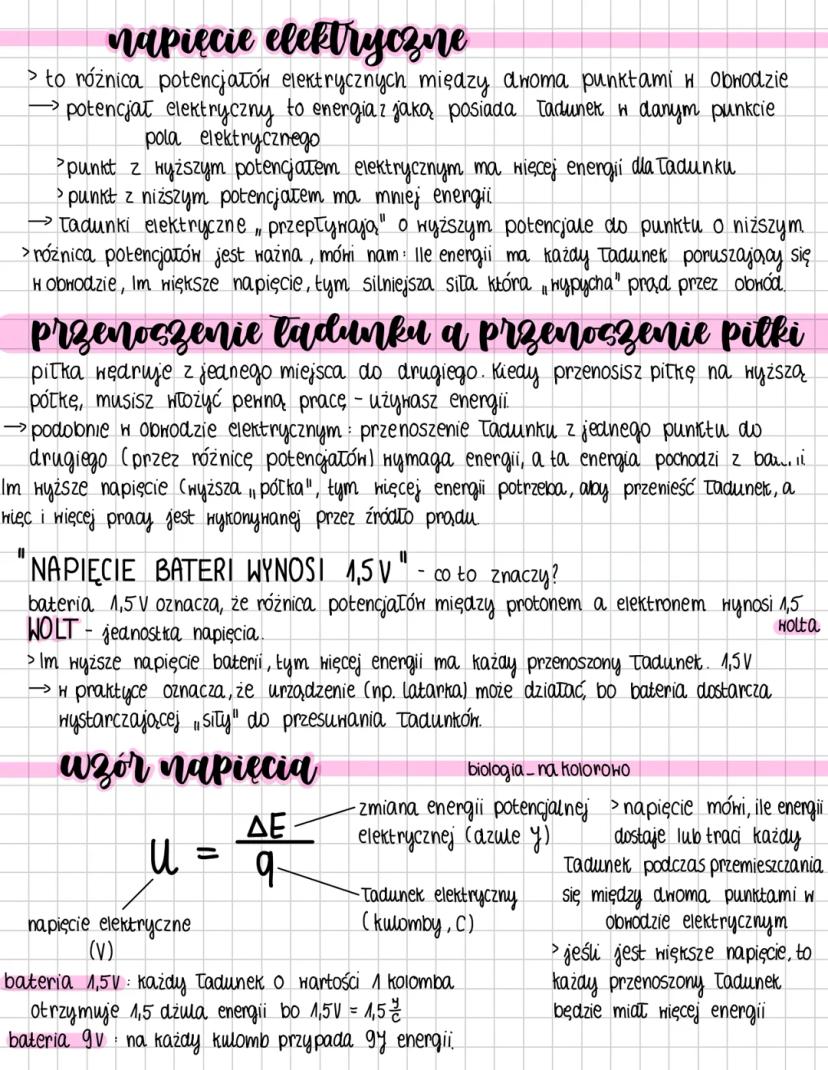 napięcie elektryczne
> to różnica potencjałów elektrycznych między dwoma punktami w obwodzie
→ potencjał elektryczny to energia z jaką posiada ładunek w danym punkcie
pola elektrycznego
> punkt z wyższym potencjałem elektrycznym ma więcej energii dla ładunku
> punkt z niższym potencjałem ma mniej energii
→ ładunki elektryczne „przepływają" o wyższym potencjale do punktu o niższym.
> różnica potencjałów jest ważna, mówi nam: Ile energii ma każdy ładunek poruszający się
w obwodzie, Im większe napięcie, tym silniejsza siła która „wypycha" prąd przez obwód.
przenoszenie ładunku a przenoszenie piłki
piłka wędruje z jednego miejsca do drugiego. Kiedy przenosisz piłkę na wyższą
półkę, musisz włożyć pewną pracę - używasz energii.
→ podobnie w obwodzie elektrycznym: przenoszenie ładunku z jednego punktu do
drugiego (przez różnicę potencjałów) wymaga energii, a ta energia pochodzi z
Im wyższe napięcie (wyższa „półka", tym więcej energii potrzeba, aby przenieść ładunek, a
więc i więcej pracy jest wykonywanej przez źródło prądu.
"NAPIĘCIE BATERI WYNOSI 1,5V" - co to znaczy?
bateria 1,5V oznacza, że różnica potencjałów między protonem a elektronem wynosi 1,5
wolta
WOLT - jednostka napięcia.
> Im wyższe napięcie baterii, tym więcej energii ma każdy przenoszony ładunek. 1,5V
→ w praktyce oznacza, że urządzenie (np. latarka) może działać, bo bateria dostarcza
wystarczającej „siły" do przesuwania ładunków.
wzór napięcia
biologia_na kolorowo
U = ΔE/q
zmiana energii potencjalnej
elektrycznej (dżule J)
ładunek elektryczny
(kulomby, C)
napięcie elektryczne
(V)
> napięcie mówi, ile energii
dostaje lub traci każdy
ładunek podczas przemieszczania
się między dwoma punktami w
obwodzie elektrycznym
> jeśli jest większe napięcie, to
każdy przenoszony ładunek
będzie miał więcej energii
bateria 1,5V: każdy ładunek o wartości 1 kolomba
otrzymuje 1,5 dżula energii bo 1,5V = 1,5 J/C
bateria 9V: na każdy kulomb przypada 9J energii.